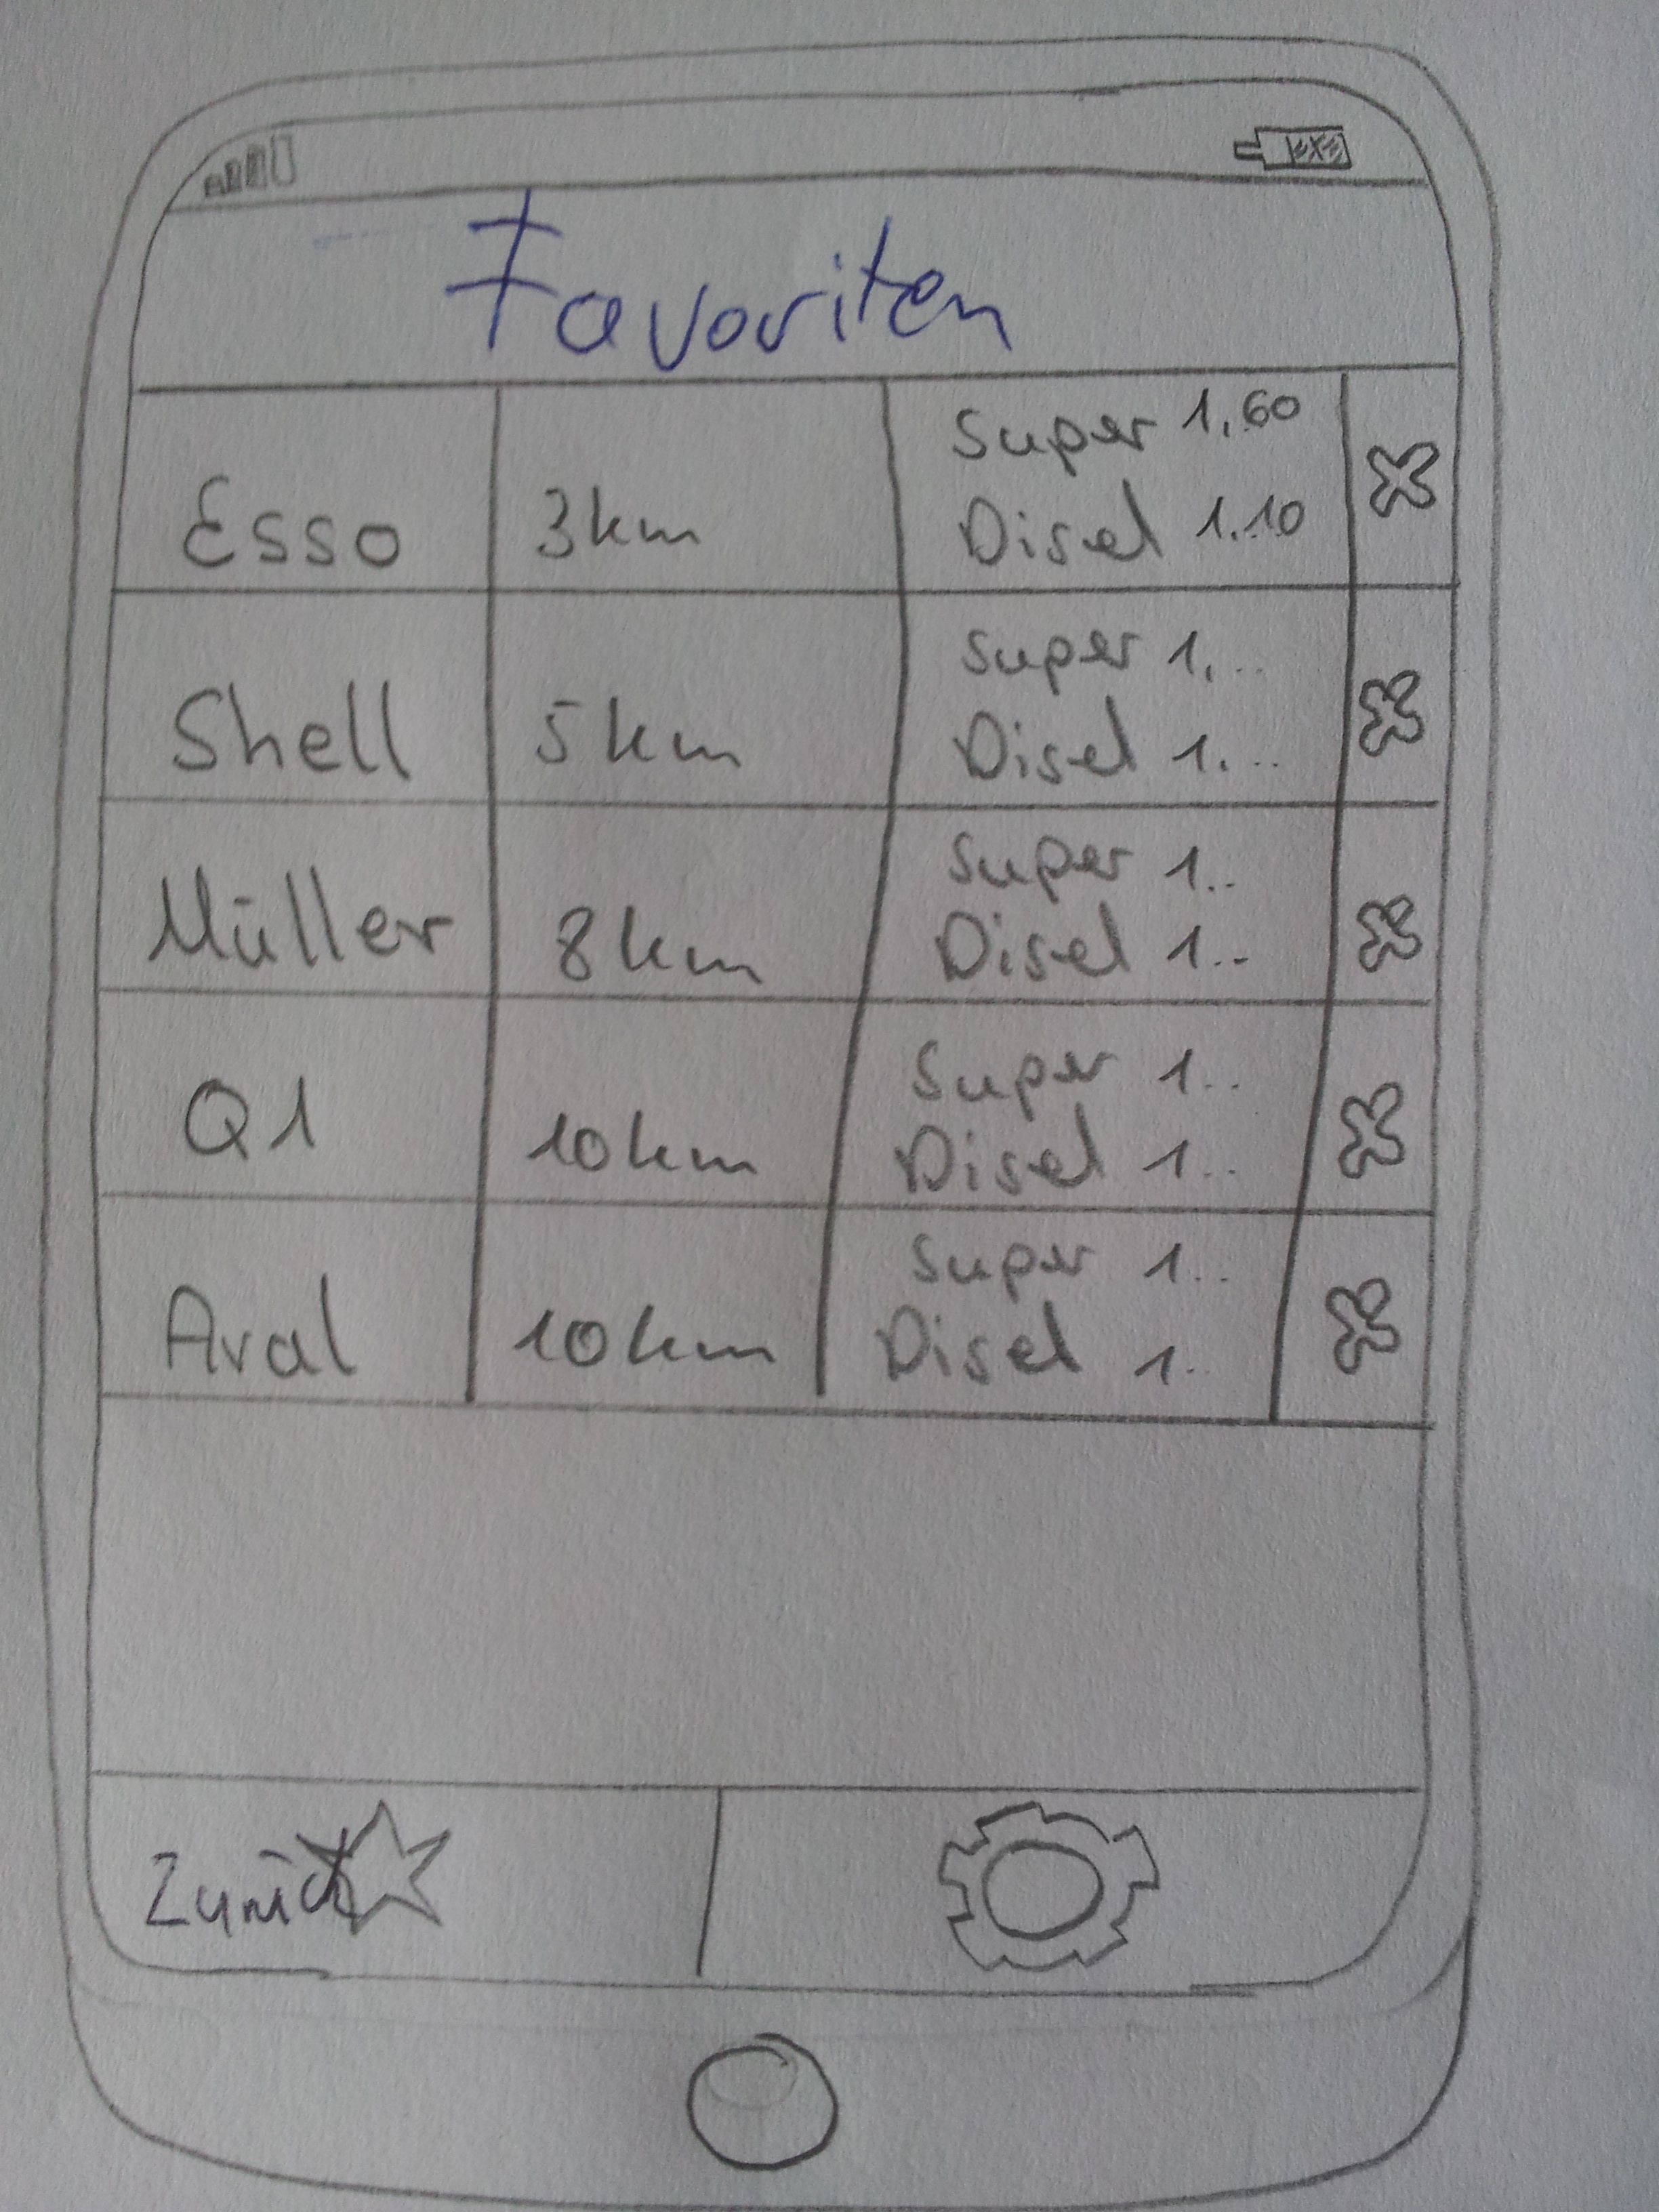 Favoriten
Esso 3km Super 1,60
Disel 1.10
Shell 5km Super 1,..
Disel 1,..
Müller 8km Super 1..
Disel 1..
Q1 10km Super 1..
Disel 1..
Aral 10km Super 1..
Disel 1..
Zurück